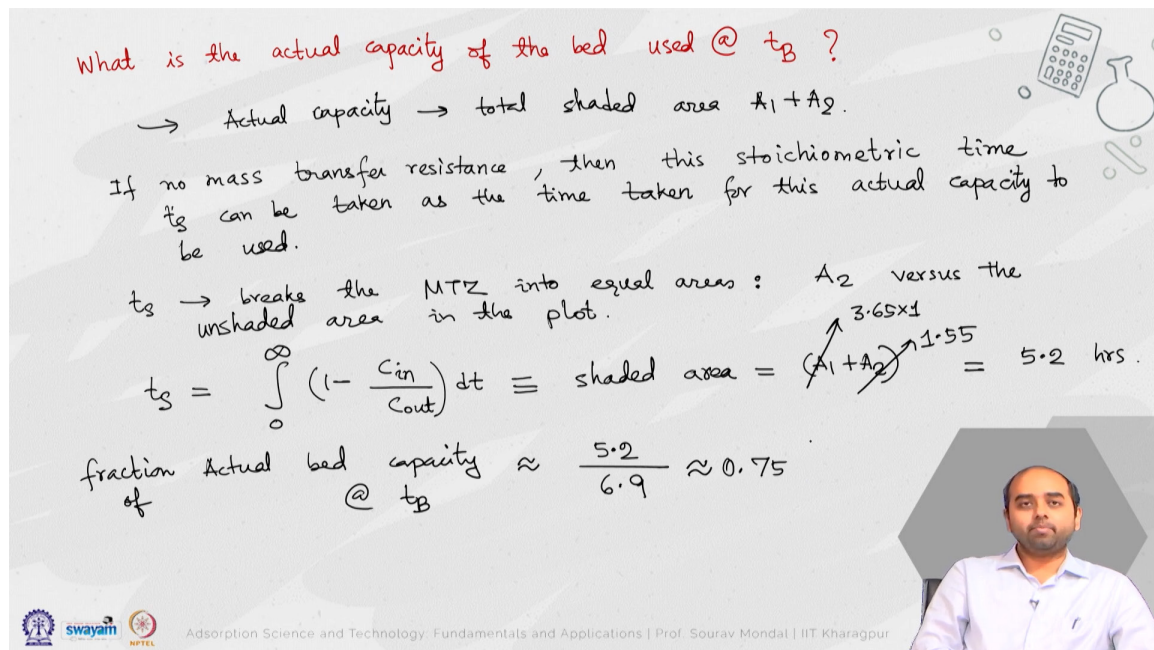 What is the actual capacity of the bed used @ tB ?
→ Actual capacity → total shaded area A1 + A2.
If no mass transfer resistance, then this stoichiometric time
ts can be taken as the time taken for this actual capacity to
be used.
ts → breaks the MTZ into equal areas : A2 versus the
unshaded area in the plot.
3.65×1
1.55
ts = ∫0∞ (1 - Cin/Cout) dt ≡ shaded area = (A1 + A2) = 5.2 hrs.
fraction Actual bed capacity ≈ 5.2/6.9 ≈ 0.75
of @ tB
swayam
NPTEL
Adsorption Science and Technology: Fundamentals and Applications | Prof. Sourav Mondal | IIT Kharagpur